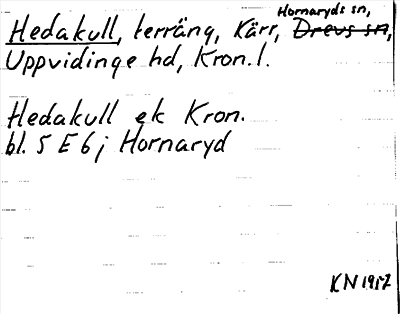 Hedakull, terräng, Kärr, Hornaryds sn, Drevs sn,
Uppvidinge hd, Kron. l.
Hedakull ek Kron.
bl. 5 E 6 j Hornaryd
KN 1957